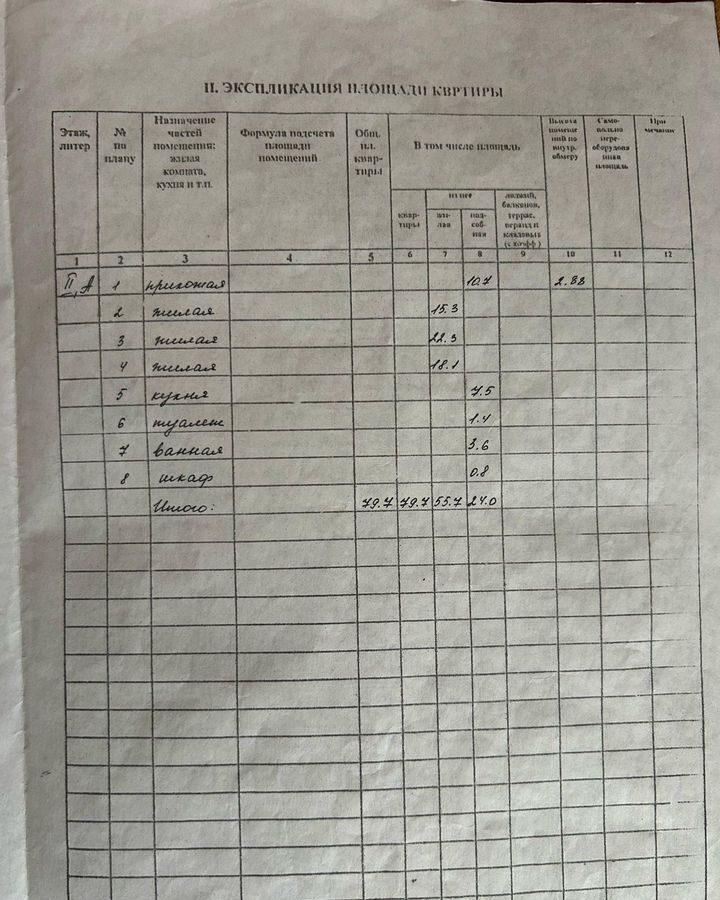 II. ЭКСПЛИКАЦИЯ ПЛОЩАДИ КВРТИРЫ
Этаж, литер
№ по плану
Назначение частей помещения: жилая комната, кухня и т.п.
Формула подсчета площади помещений
Общ. пл. квар- тиры
В том числе площадь
Высота помеще ний по внутр. обмеру
Само- вольно пере- оборудова нная площадь
При мечание
квар- тиры
из нее
жи- лая
под- соб- ная
лоджий, балконов, террас, веранд и кладовых (с коэфф)
1 2 3 4 5 6 7 8 9 10 11 12
II, А 1 прихожая 10.7 2.83
2 жилая 15.3
3 жилая 22.3
4 жилая 18.1
5 кухня 7.5
6 туалет 1.4
7 ванная 3.6
8 шкаф 0.8
Итого: 79.7 79.7 55.7 24.0